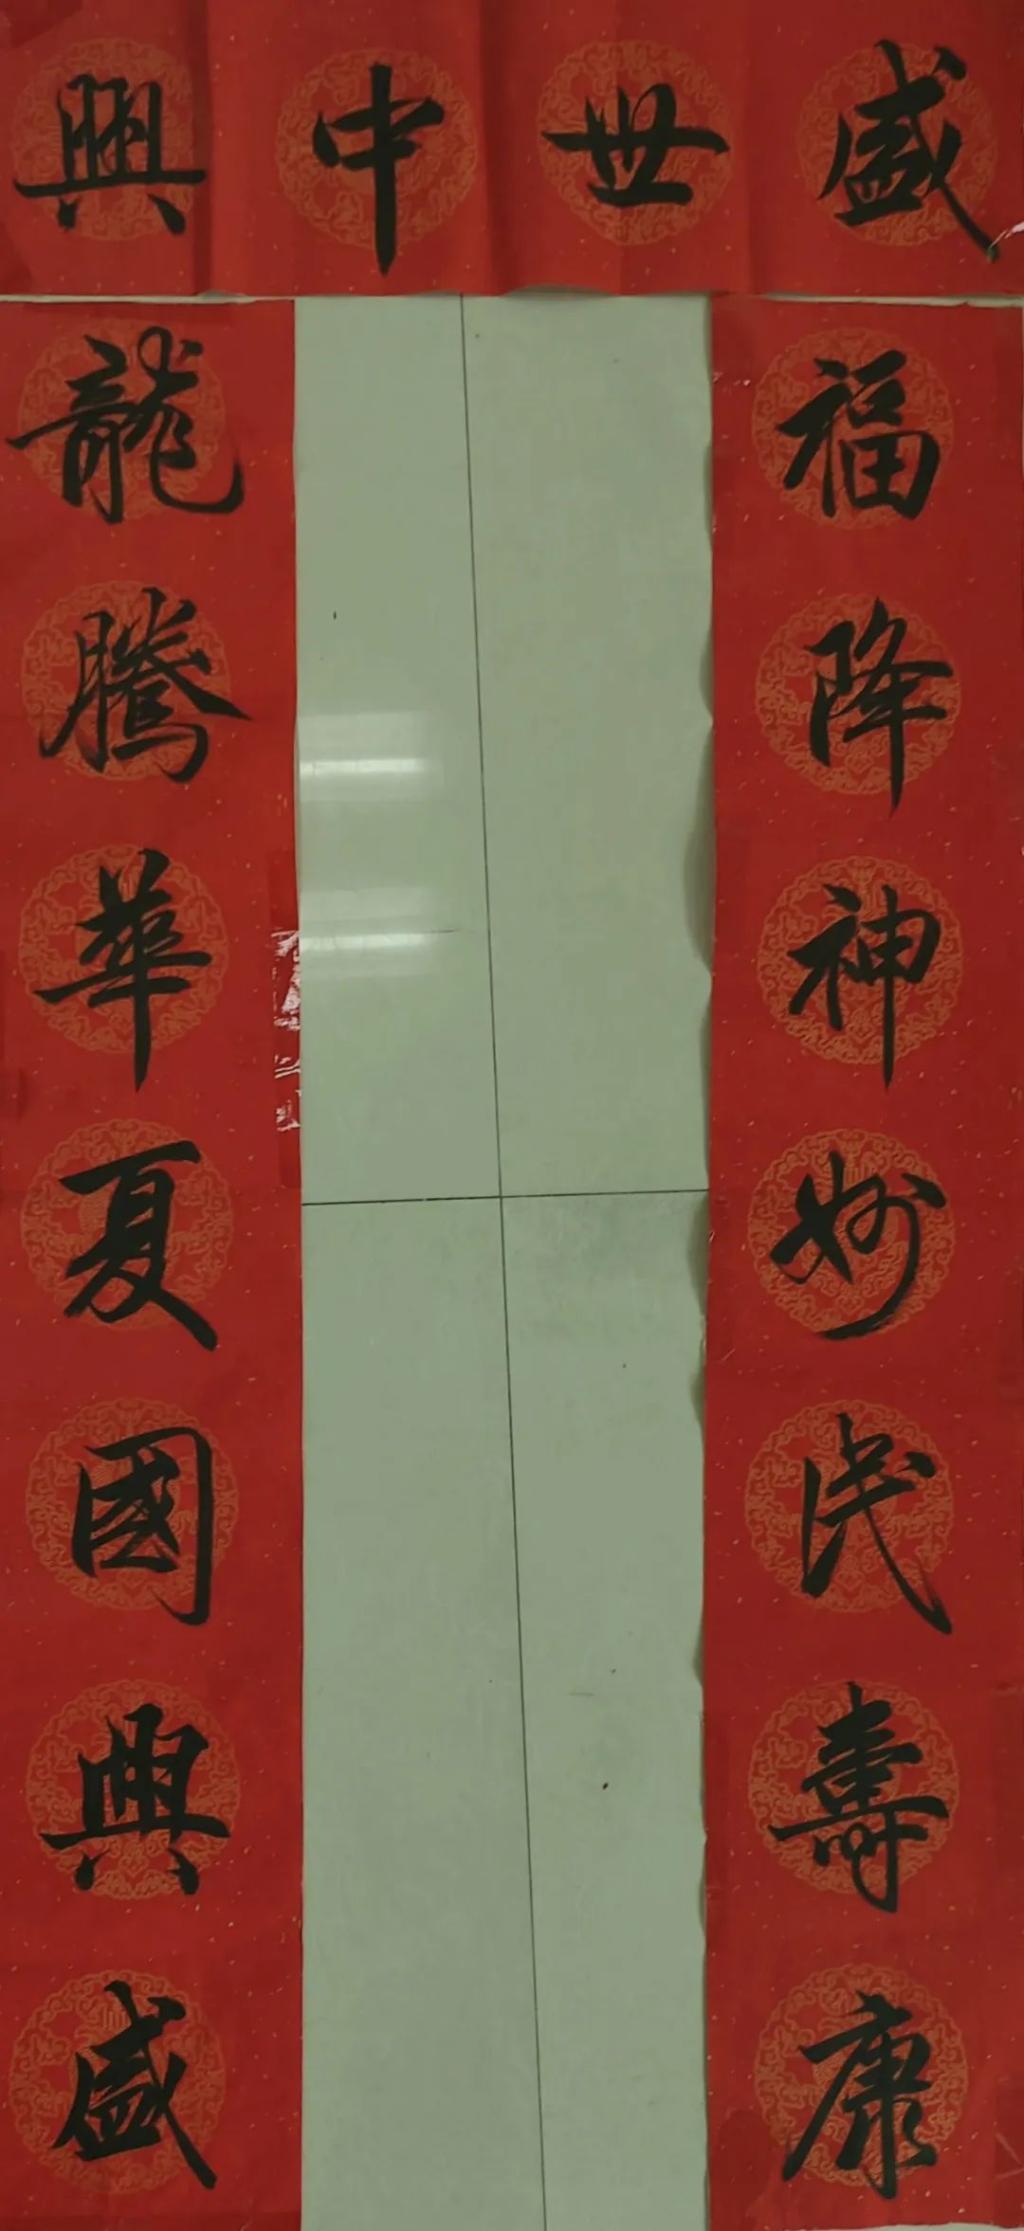 盛世中興
福降神妙民壽康
龍騰華夏國興盛